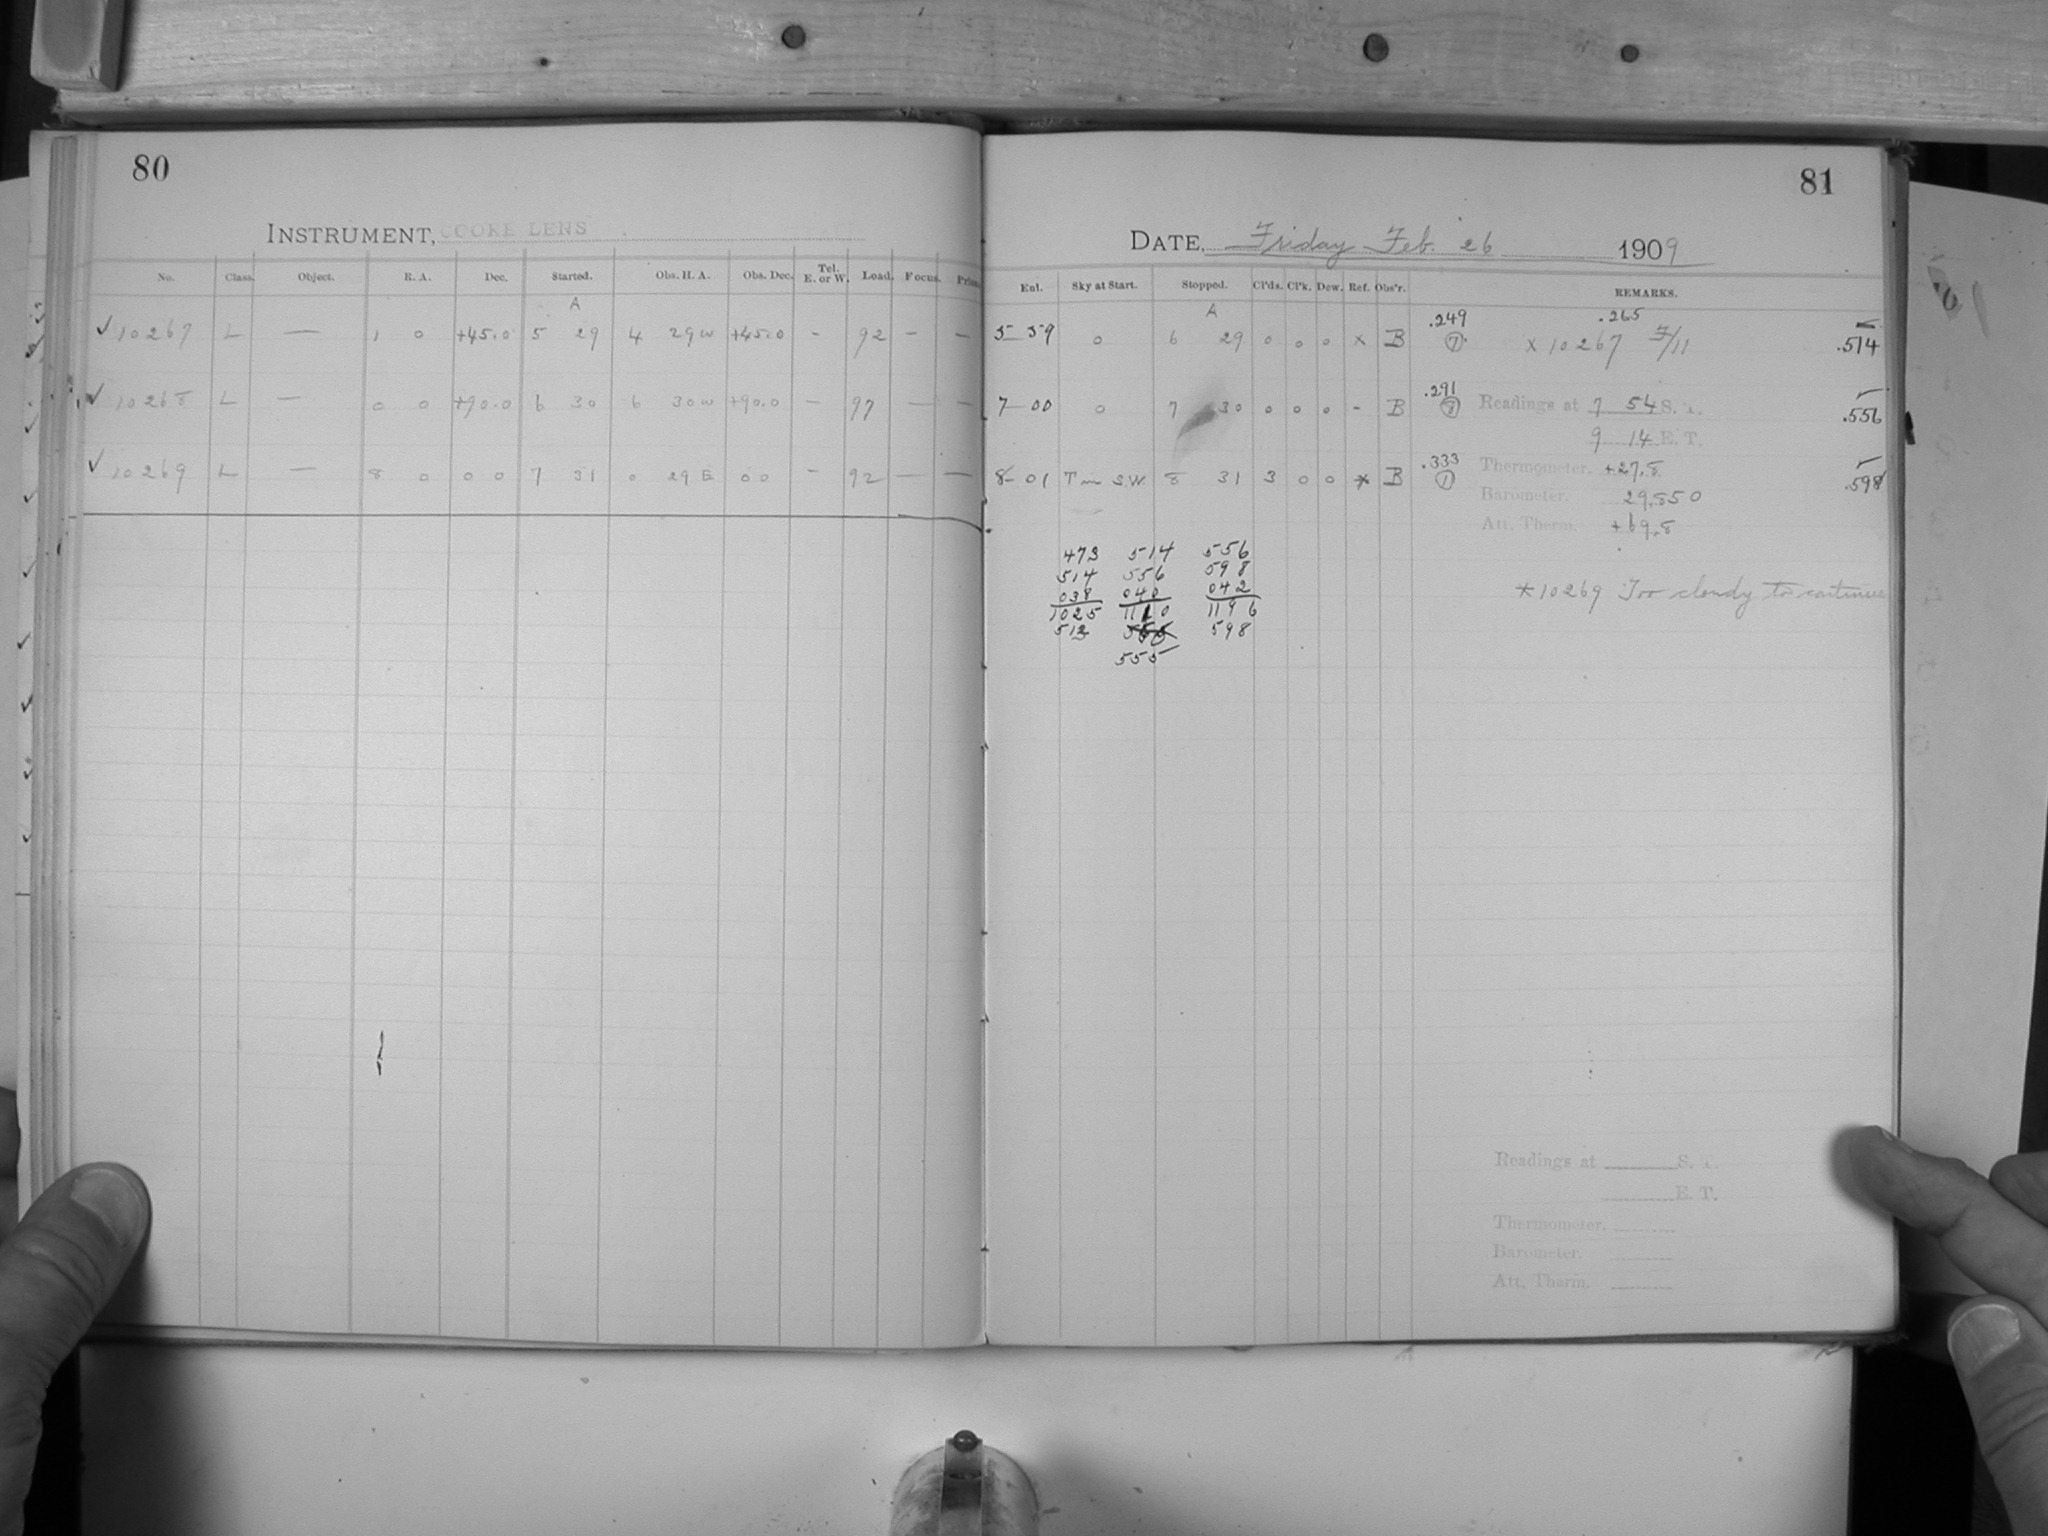 80
INSTRUMENT, COOKE LENS
No. Class. Object. R. A. Dec. Started. Obs. H. A. Obs. Dec. Tel. E. or W. Load. Focus. Prism
A
✓ 10267 L — 1 0 +45.0 5 29 4 29 W +45.0 – 92 – –
✓ 10268 L — 0 0 +90.0 6 30 6 30 W +90.0 – 97 — —
✓ 10269 L — 8 0 0 0 7 31 0 29 E 0 0 – 92 — —
81
DATE, Friday Feb. 26 1909
Ent. Sky at Start. Stopped. Cl'ds. Cl'k. Dew. Ref. Obs'r. REMARKS.
A .249 .265
5 59 0 6 29 0 0 0 x B 7 x 10267 F/11 .514
.291
7 00 0 7 30 0 0 0 - B 8 Readings at 7 54 S. T. .556
9 14 E. T.
.333
8 01 T in S.W. 8 31 3 0 0 * B 1 Thermometer. +27.8 .598
Barometer. 29.850
Att. Therm. +69.8
473 514 556
514 556 598
038 040 042
1025 1110 1196
512 555 598
555
* 10269 Too cloudy to continue
Readings at S. T.
E. T.
Thermometer.
Barometer.
Att. Therm.